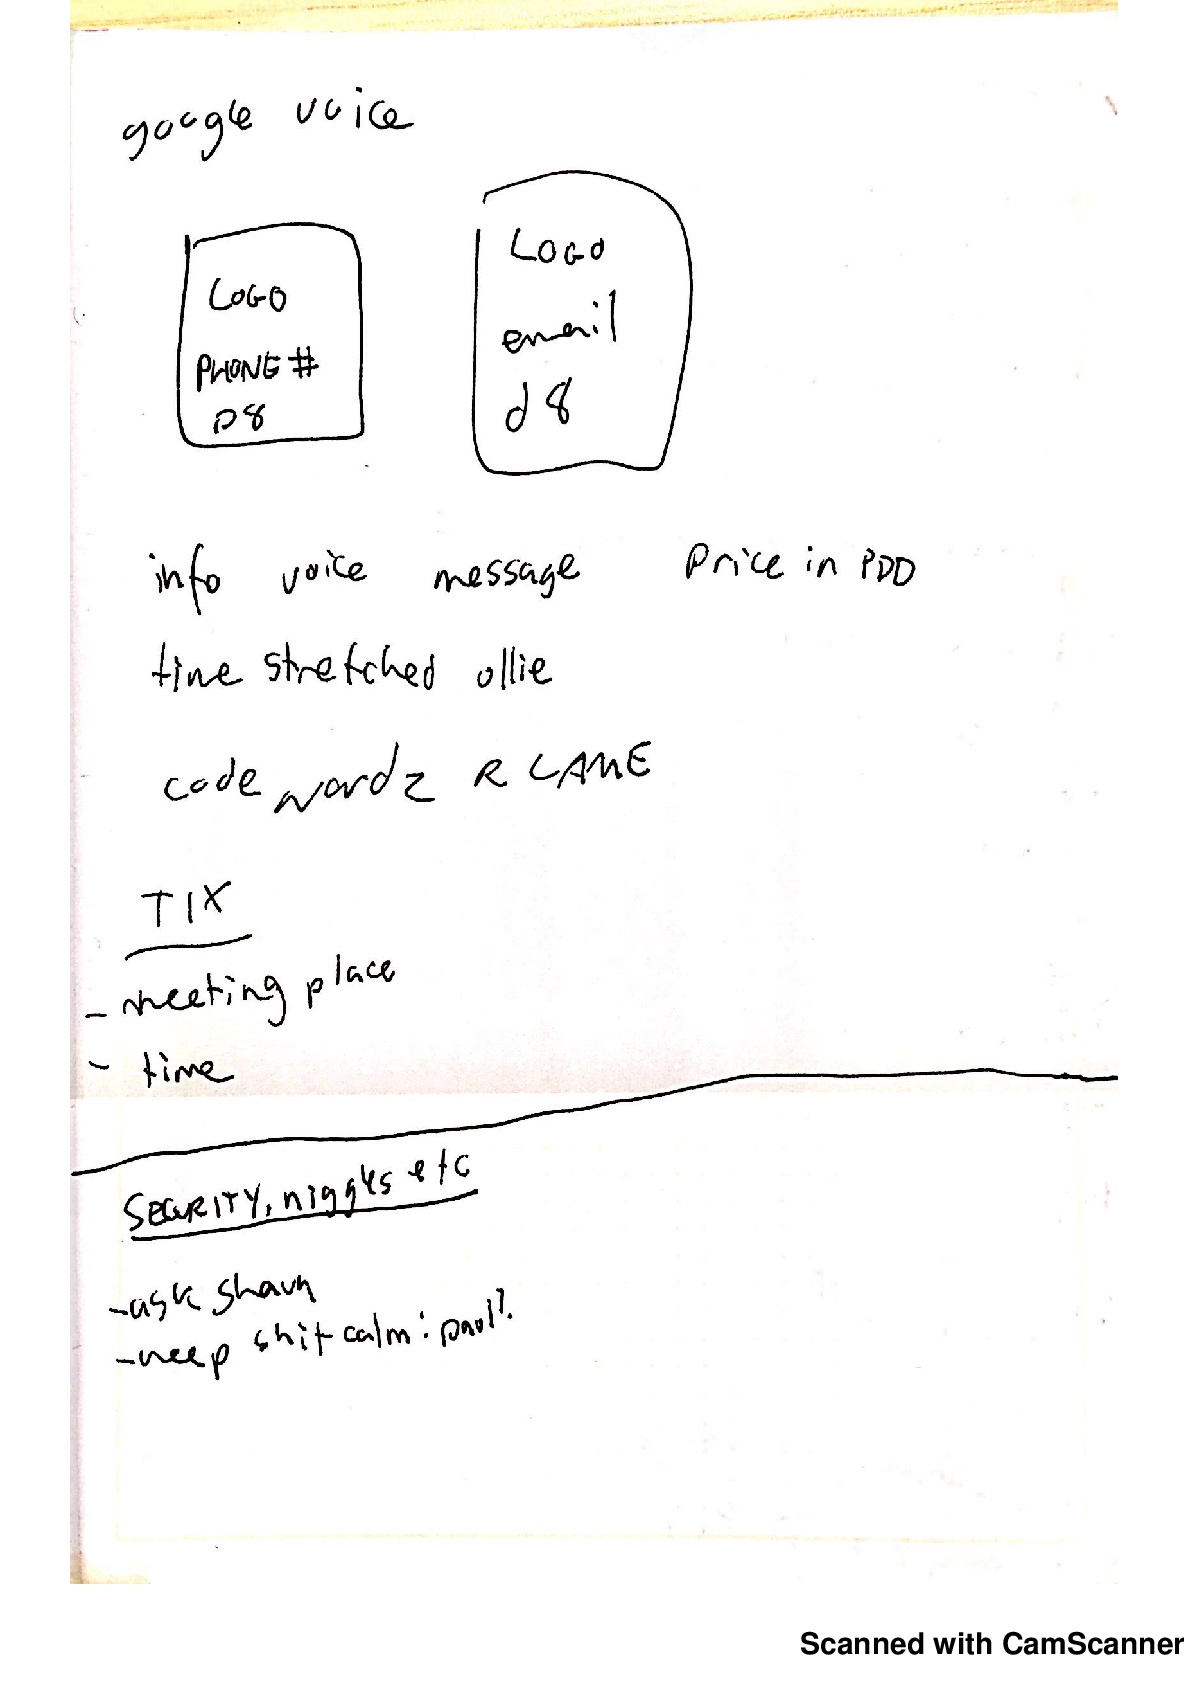 google voice
LOGO
PHONE #
D8
LOGO
email
d8
info voice message
Price in PDD
time stretched ollie
code wordz R LAME
TIX
- meeting place
- time
SECURITY, niggles etc
- ask shaun
- keep shit calm: paul?
Scanned with CamScanner